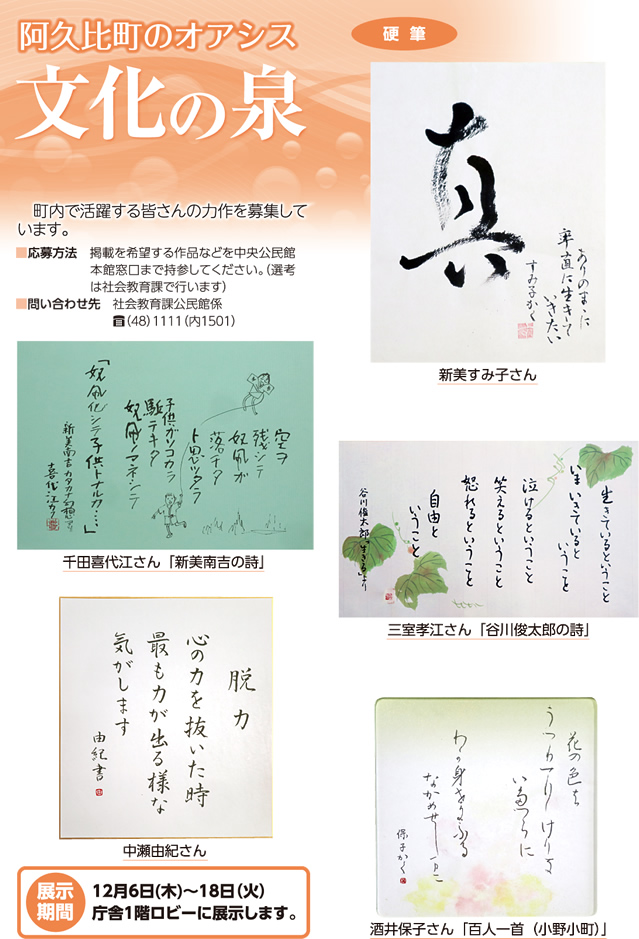 阿久比町のオアシス
文化の泉
硬筆
町内で活躍する皆さんの力作を募集して
います。
■応募方法 掲載を希望する作品などを中央公民館
本館窓口まで持参してください。(選考
は社会教育課で行います)
■問い合わせ先 社会教育課公民館係
☎(48)1111(内1501)
真
ありのまゝに
率直に生きて
いきたい
すみ子かく
新美すみ子さん
空ヲ
残シテ
奴凧ガ
落チタ
ト思ツタラ
子供ガソコカラ
駈テキタ
奴凧ノマネシテ
「奴凧化シテ子供トナルカ…」
新美南吉のカタカナ幻想より
喜代江かく
千田喜代江さん「新美南吉の詩」
生きているということ
いま生きていると
いうこと
泣けるということ
笑えるということ
怒れるということ
自由と
いうこと
谷川俊太郎「生きる」より
三室孝江さん「谷川俊太郎の詩」
脱力
心の力を抜いた時
最も力が出る様な
気がします
由紀書
中瀬由紀さん
花の色は
うつりにけりな
いたづらに
わが身世にふる
ながめせしまに
保子かく
酒井保子さん「百人一首(小野小町)」
展示
期間
12月6日(木)〜18日(火)
庁舎1階ロビーに展示します。